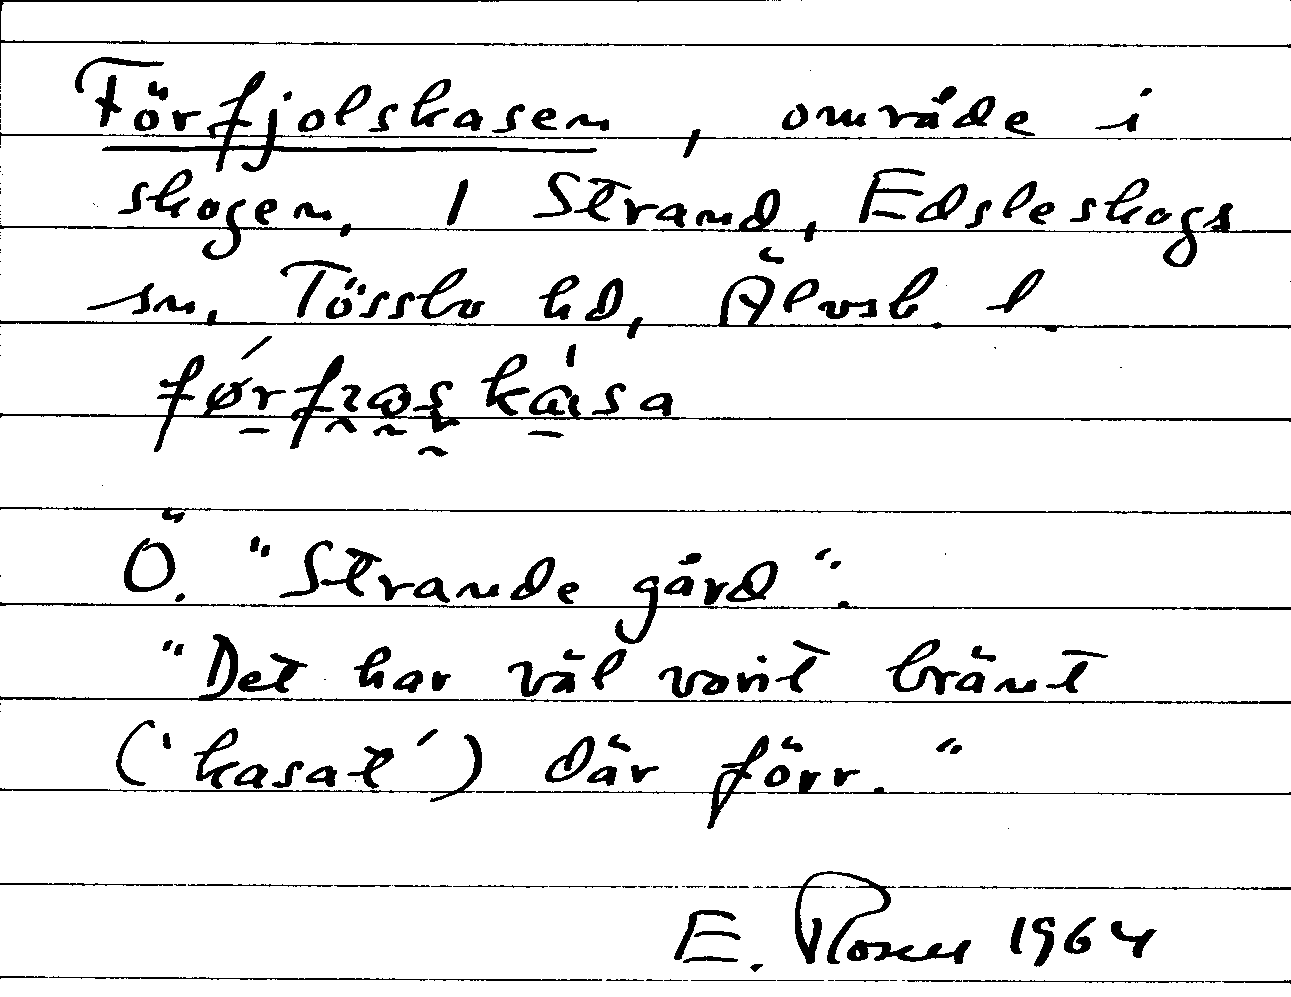 Förfjolskasen, område i
skogen, 1 Strand, Edsleskogs
sn, Tössbo hd, Älvsb. l.
kása
Ö. "Strande gård".
"Det har väl varit bränt
('kasat') där förr."
E. Rosen 1964